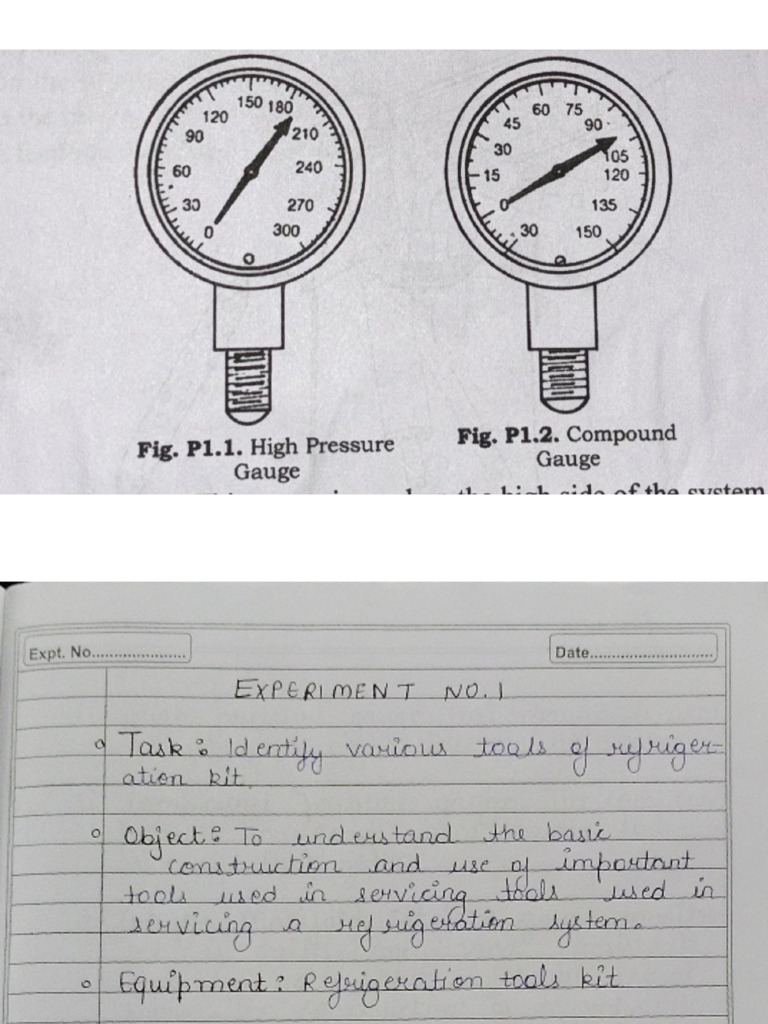 150 180
120
210
90
60
240
30
270
0
300
60 75
45
90
30
105
15
120
0
135
30
150
Fig. P1.1. High Pressure
Gauge
Fig. P1.2. Compound
Gauge
the high side of the system
Expt. No.....................
Date............................
EXPERIMENT NO. 1
Task: Identify various tools of refriger-
ation kit
Object: To understand the basic
construction and use of important
tools used in servicing tools used in
servicing a refrigeration system.
Equipment: Refrigeration tools kit